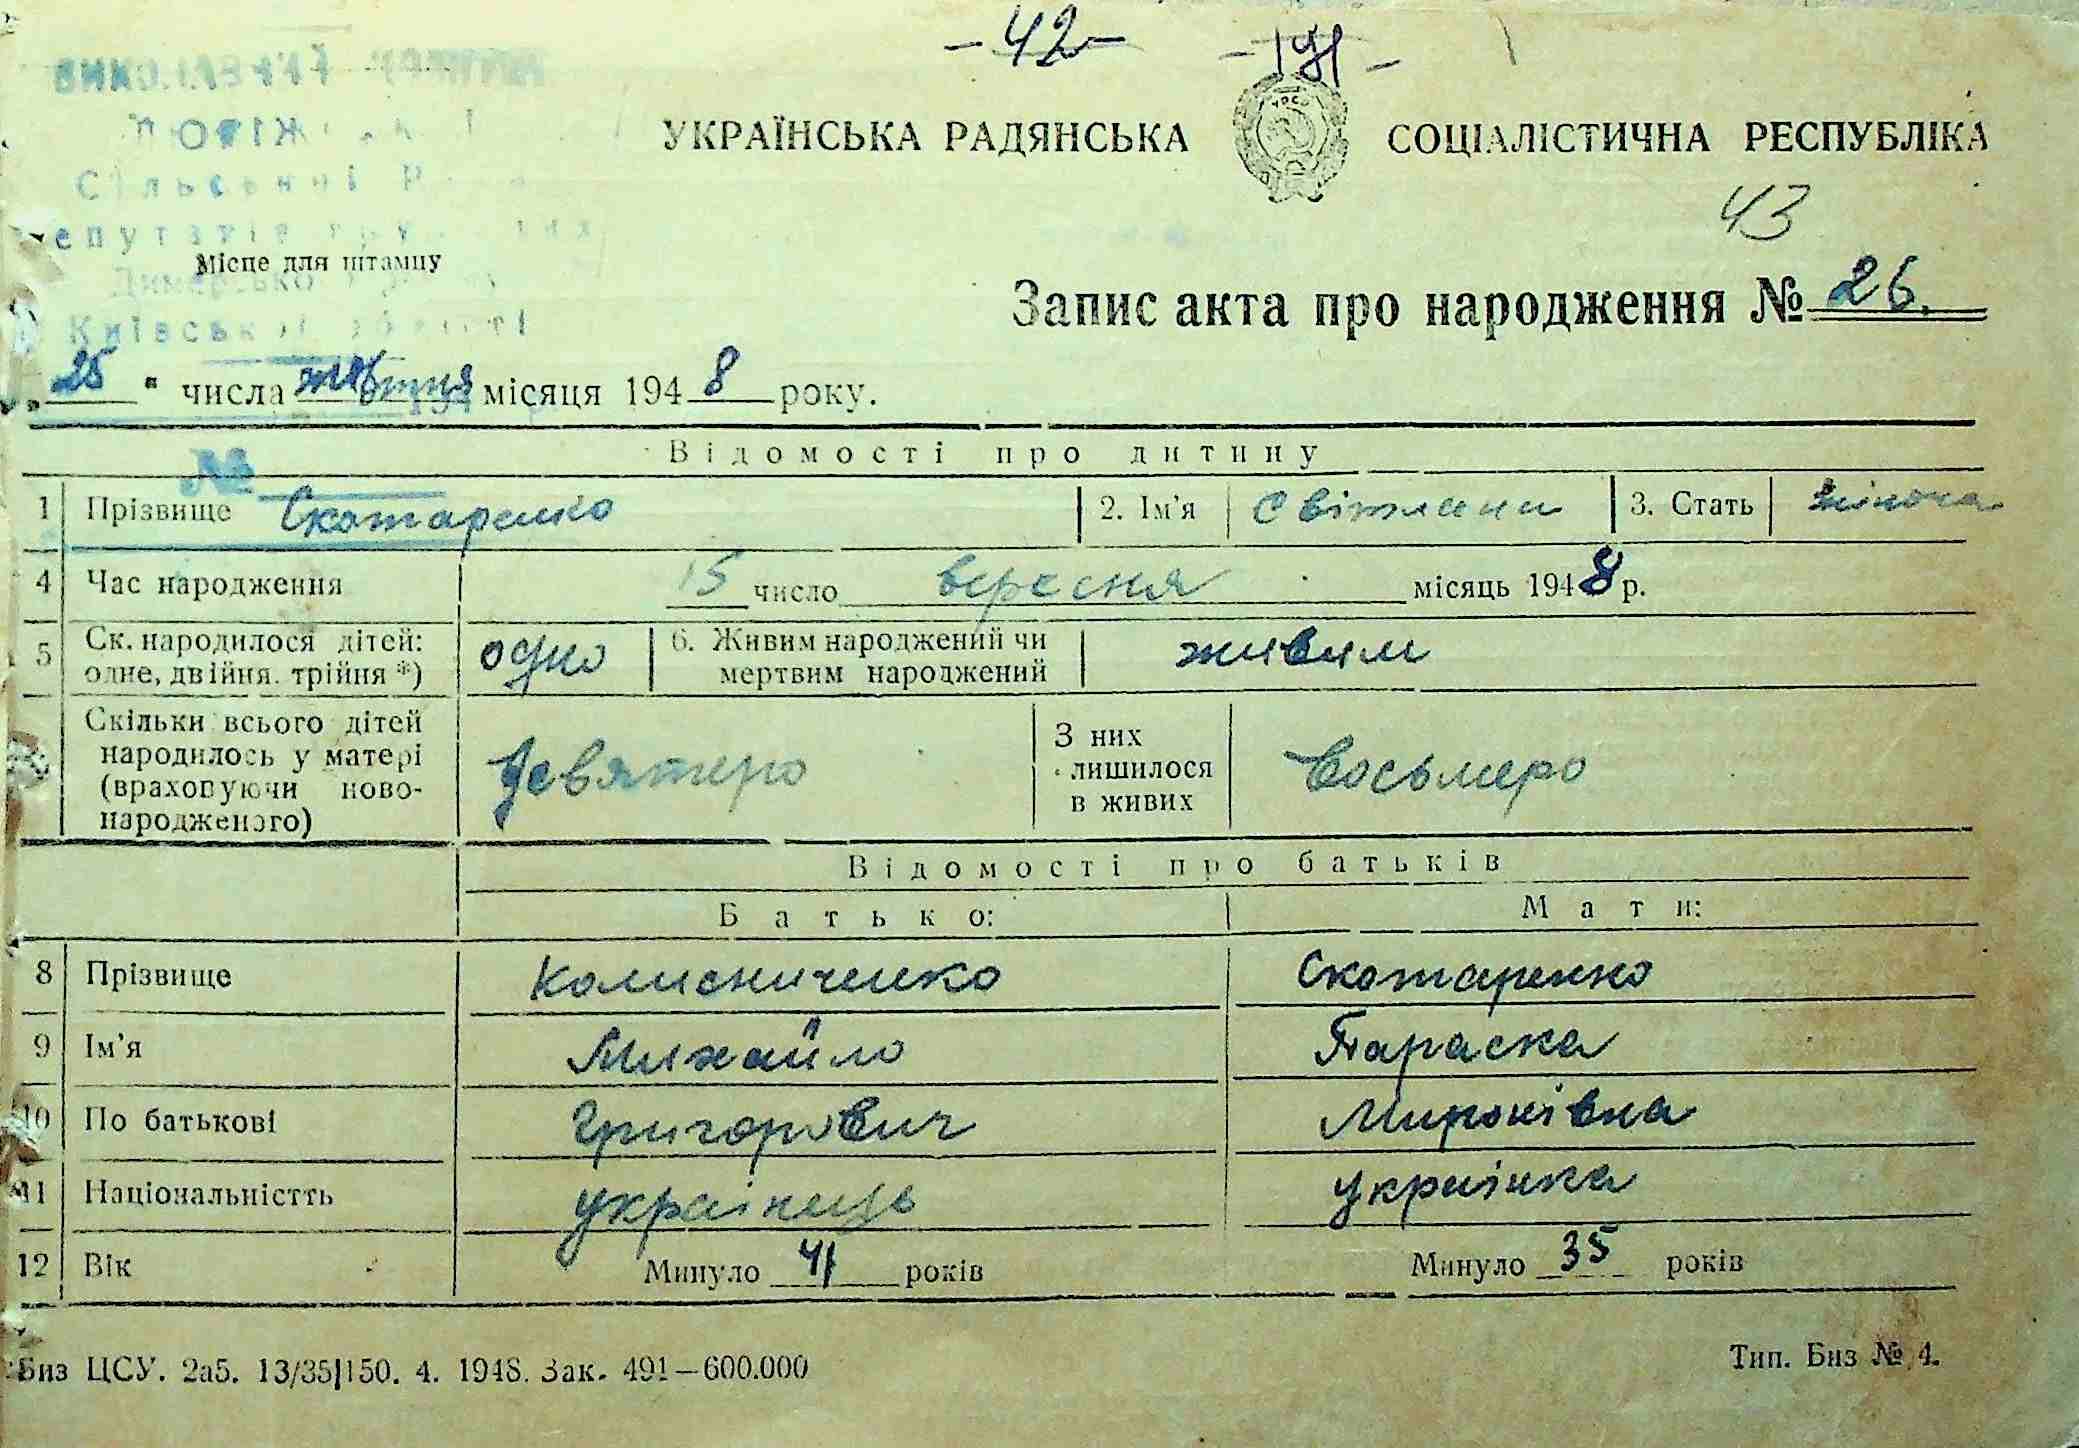 -42-
УКРАЇНСЬКА РАДЯНСЬКА СОЦІАЛІСТИЧНА РЕСПУБЛІКА
43
Сільської
Місце для штампу
Київської області
Запис акта про народження № 26.
„25" числа жовтня місяця 1948 року.
Відомості про дитину
№
1 Прізвище Скотаренко 2. Ім'я Світлана 3. Стать жіноча
4 Час народження 15 число вересня місяць 1948 р.
5 Ск. народилося дітей: одне, двійня. трійня *) одно 6. Живим народжений чи мертвим народжений живим
Скільки всього дітей народилось у матері (враховуючи новонародженого) девятеро З них лишилося в живих восьмеро
Відомості про батьків
Батько: Мати:
8 Прізвище Колисниченко Скотаренко
9 Ім'я Михайло Параска
10 По батькові Григорович Миронівна
11 Національністть украінець украінка
12 Вік Минуло 41 років Минуло 35 років
Биз ЦСУ. 2а5. 13/35|150. 4. 1948. Зак. 491—600.000 Тип. Биз № 4.